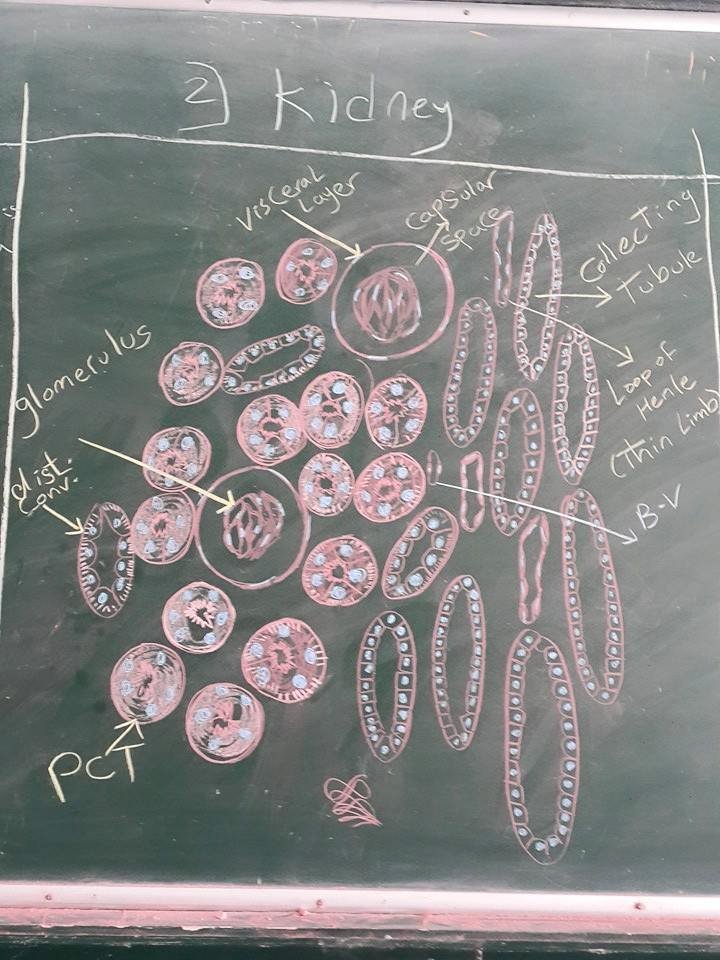 2) Kidney
Visceral
Layer
Capsular
Space
Collecting
Tubule
glomerulus
Loop of
Henle
(Thin Limb)
dist.
Conv.
B-V
PCT